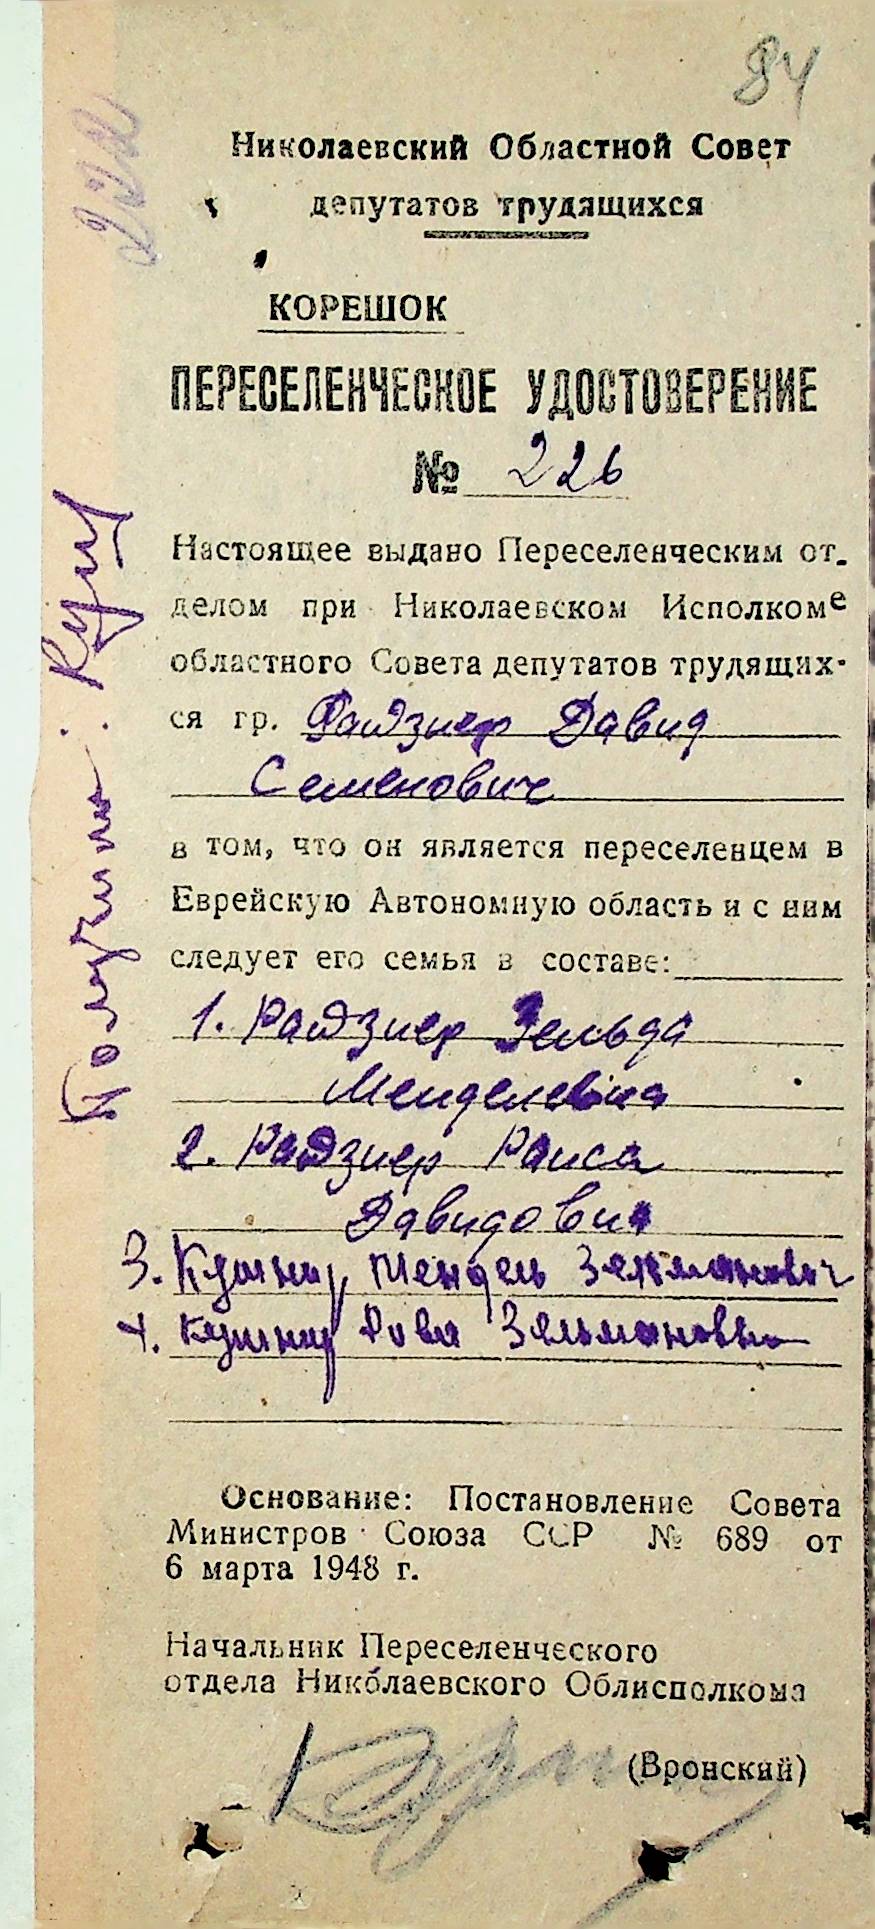 84
222
Николаевский Областной Совет
депутатов трудящихся
КОРЕШОК
ПЕРЕСЕЛЕНЧЕСКОЕ УДОСТОВЕРЕНИЕ
№ 226
Настоящее выдано Переселенческим от-
делом при Николаевском Исполкоме
областного Совета депутатов трудящих-
ся гр. Радзиер Давид
Семенович
в том, что он является переселенцем в
Еврейскую Автономную область и с ним
следует его семья в составе:
1. Радзиер Зельда
Менделевна
2. Радзиер Раиса
Давидовна
3. Кушнир Мендель Зельманович
4. Кушнир Рива Зельмановна
Основание: Постановление Совета
Министров Союза ССР № 689 от
6 марта 1948 г.
Начальник Переселенческого
отдела Николаевского Облисполкома
(Вронский)
Получил: